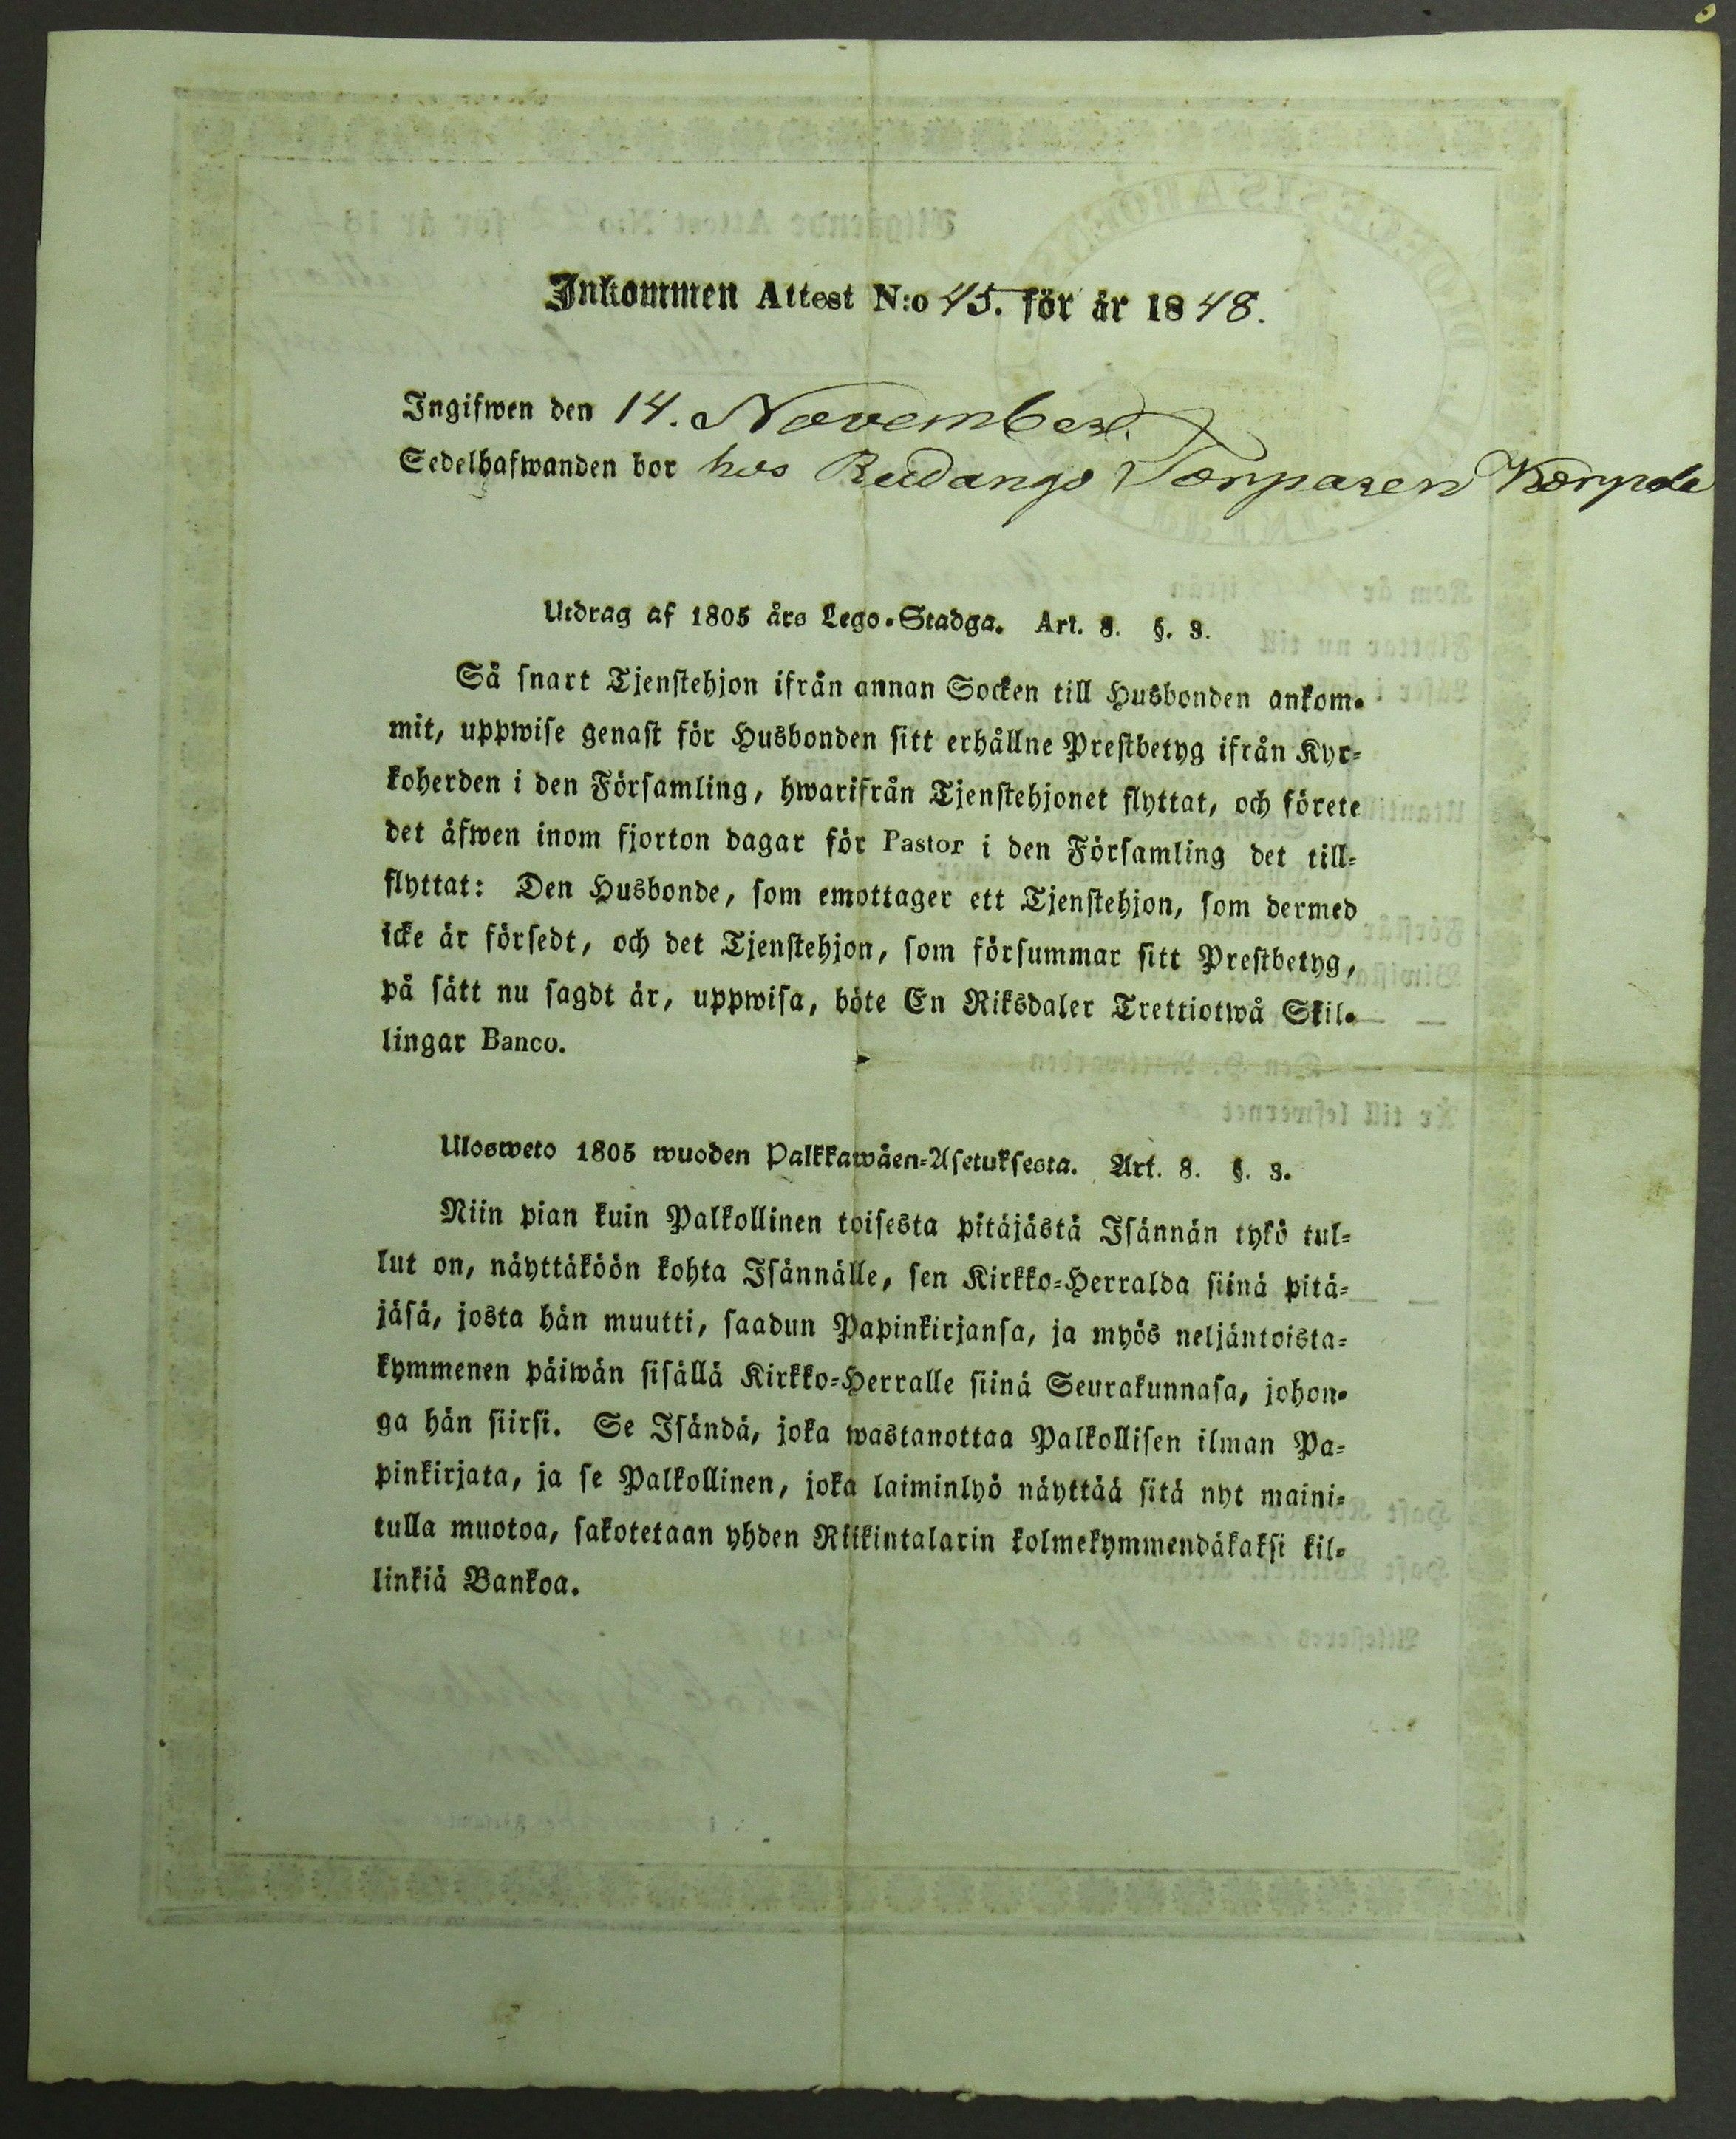 Inkommen Attest N:o 45. för år 1848.
Ingifwen den 14. November.
Sedelhafwanden bor hos Rudangs Torparen Kärpelä
Utdrag af 1805 års Lego-Stadga. Art. 8. §. 3.
Så snart Tjenstehjon ifrån annan Socken till Husbonden ankom-
mit, uppwise genast för Husbonden sitt erhållne Prestbetyg ifrån Kyr-
koherden i den Församling, hwarifrån Tjenstehjonet flyttat, och förete
det äfwen inom fjorton dagar för Pastor i den Församling det till-
flyttat: Den Husbonde, som emottager ett Tjenstehjon, som dermed
icke är försedt, och det Tjenstehjon, som försummar sitt Prestbetyg,
på sätt nu sagdt är, uppwisa, böte En Riksdaler Trettiotwå Skil-
lingar Banco.
Ulosweto 1805 wuoden Palkkawäen-Asetuksesta. Art. 8. §. 3.
Niin pian kuin Palkollinen toisesta pitäjästä Isännän tykö tul-
lut on, näyttäköön kohta Isännälle, sen Kirkko-Herralda siinä pitä-
jäsä, josta hän muutti, saadun Papinkirjansa, ja myös neljäntoista-
kymmenen päiwän sisällä Kirkko-Herralle siinä Seurakunnasa, johon-
ga hän siirsi. Se Isändä, joka wastanottaa Palkollisen ilman Pa-
pinkirjata, ja se Palkollinen, joka laiminlyö näyttää sitä nyt maini-
tulla muotoa, sakotetaan yhden Riikintalarin kolmekymmendäkaksi kil-
linkiä Bankoa.